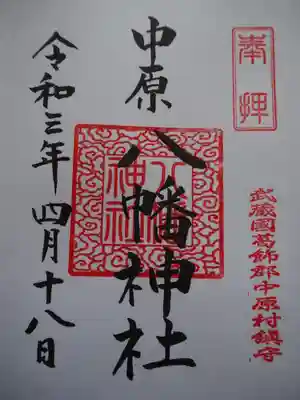 奉拝
武蔵國葛飾郡中原村鎮守
中原
八幡神社
八幡
神社
令和三年四月十八日